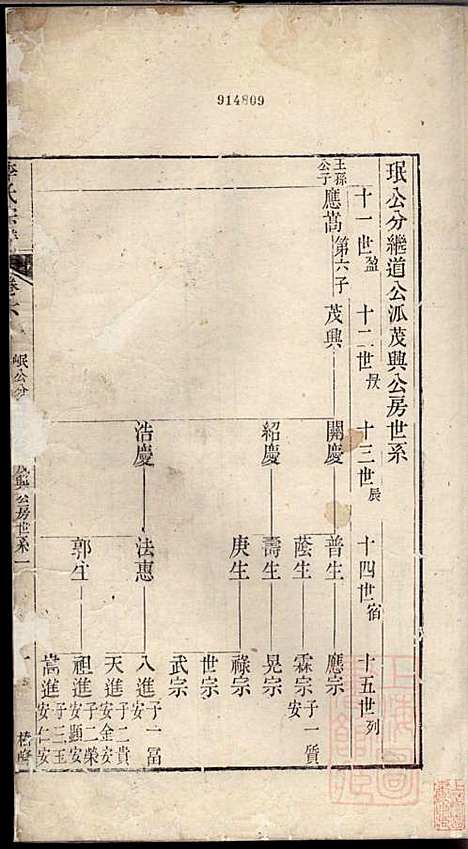 914809
珉公分繼道公派茂興公房世系
十一世盈
十二世昃
十三世辰
十四世宿
十五世列
王孫公子
應嵩第六子
茂興
開慶
普生
應宗
蔭生
霖宗子一質安
紹慶
壽生
晃宗
庚生
祿宗
世宗
武宗
浩慶
法惠
八進子一富安
天進子二貴安金安
郭生
祖進子二榮安顯安
嵩進子三玉安仁安
氏宗譜
卷六
珉公分
興公房世系
一